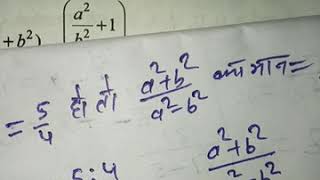 +b²) (a²/b² + 1)
= 5/4 हो तो (a²+b²)/(a²-b²) का मान =
5:4 a²+b²